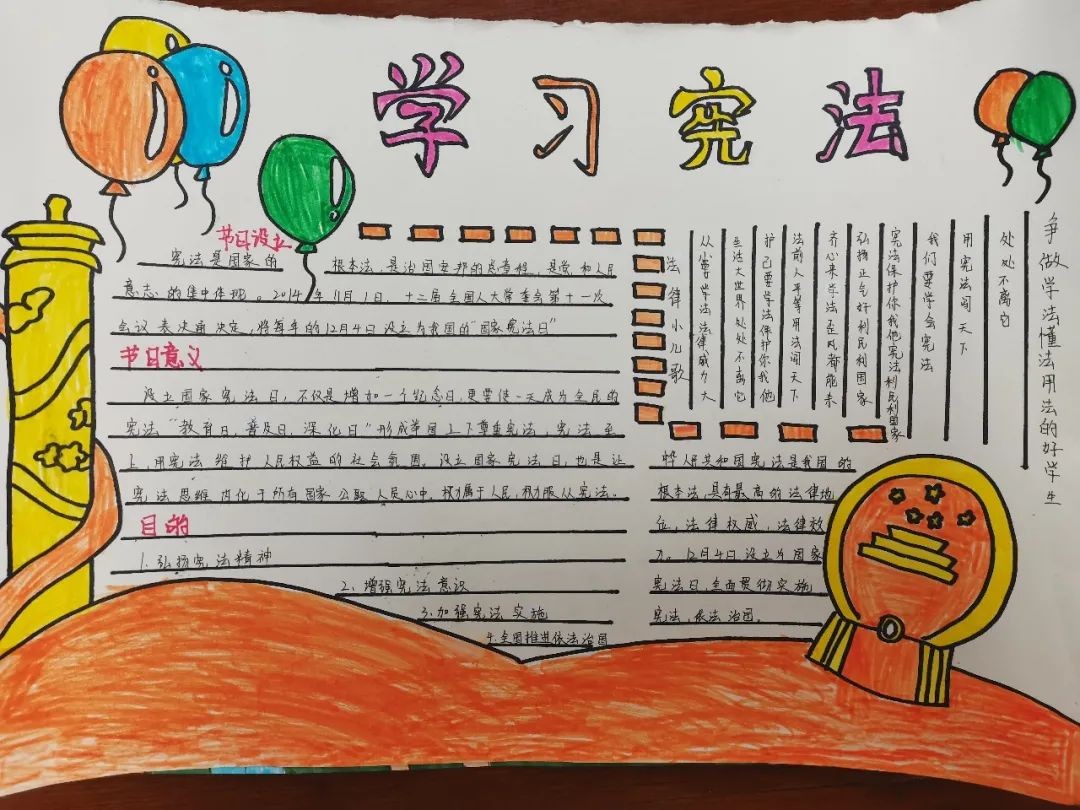 学习宪法
节日设立
宪法是国家的 根本法，是治国安邦的总章程，是党和人民
意志的集中体现。2014年11月1日，十二届全国人大常委会第十一次
会议表决通决定，将每年的12月4日设立为我国的“国家宪法日”
节日意义
设立国家宪法日，不仅是增加一个纪念日，更要使一天成为全民的
宪法“教育日，普及日，深化日”形成举国上下尊重宪法，宪法至
上，用宪法维护人民权益的社会氛围。设立国家宪法日，也是让
宪法思维内化于所有国家公职人员心中。权力属于人民，权力服从宪法。
目的
1. 弘扬宪法精神
2. 增强宪法意识
3. 加强宪法实施
4. 全面推进依法治国
法律小儿歌
从小学法律威力大
生活大世界处处不离它
护己要学法保护你我他
法前人平等用法闯天下
齐心来学法
弘扬正气好利民利国家
宪法保护你我他宪法利民利国家
我们要学会宪法
用宪法闯天下
处处不离它
争做学法懂法用法的好学生
人民共和国宪法是我国的
根本法，具有最高的法律地
位，法律权威，法律效
力。12月4日设立为国家
宪法日，全面贯彻实施
宪法，依法治国。